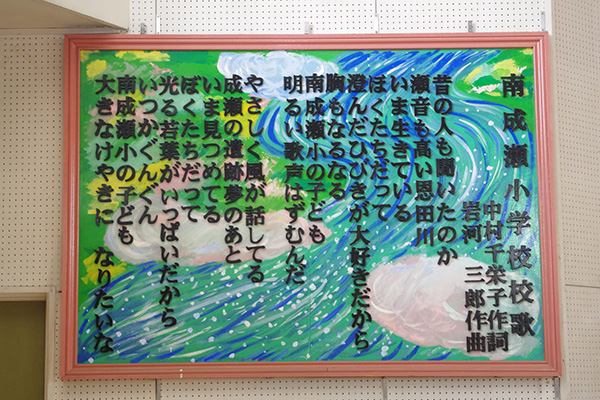 南成瀬小学校校歌
中村千栄子作詞
岩河三郎作曲
昔の人も聞いたのか
瀬音も高い恩田川
いま生きている
ぼくたちだって
澄んだひびきが大好きだから
胸もなるなる
南成瀬小の子ども
明るい歌声はずむんだ
やさしく風が話してる
成瀬の遺跡夢のあと
いま見つめてる
ぼくたちだって
光る若葉がいっぱいだから
いつかぐんぐん
南成瀬小の子ども
大きなけやきに なりたいな